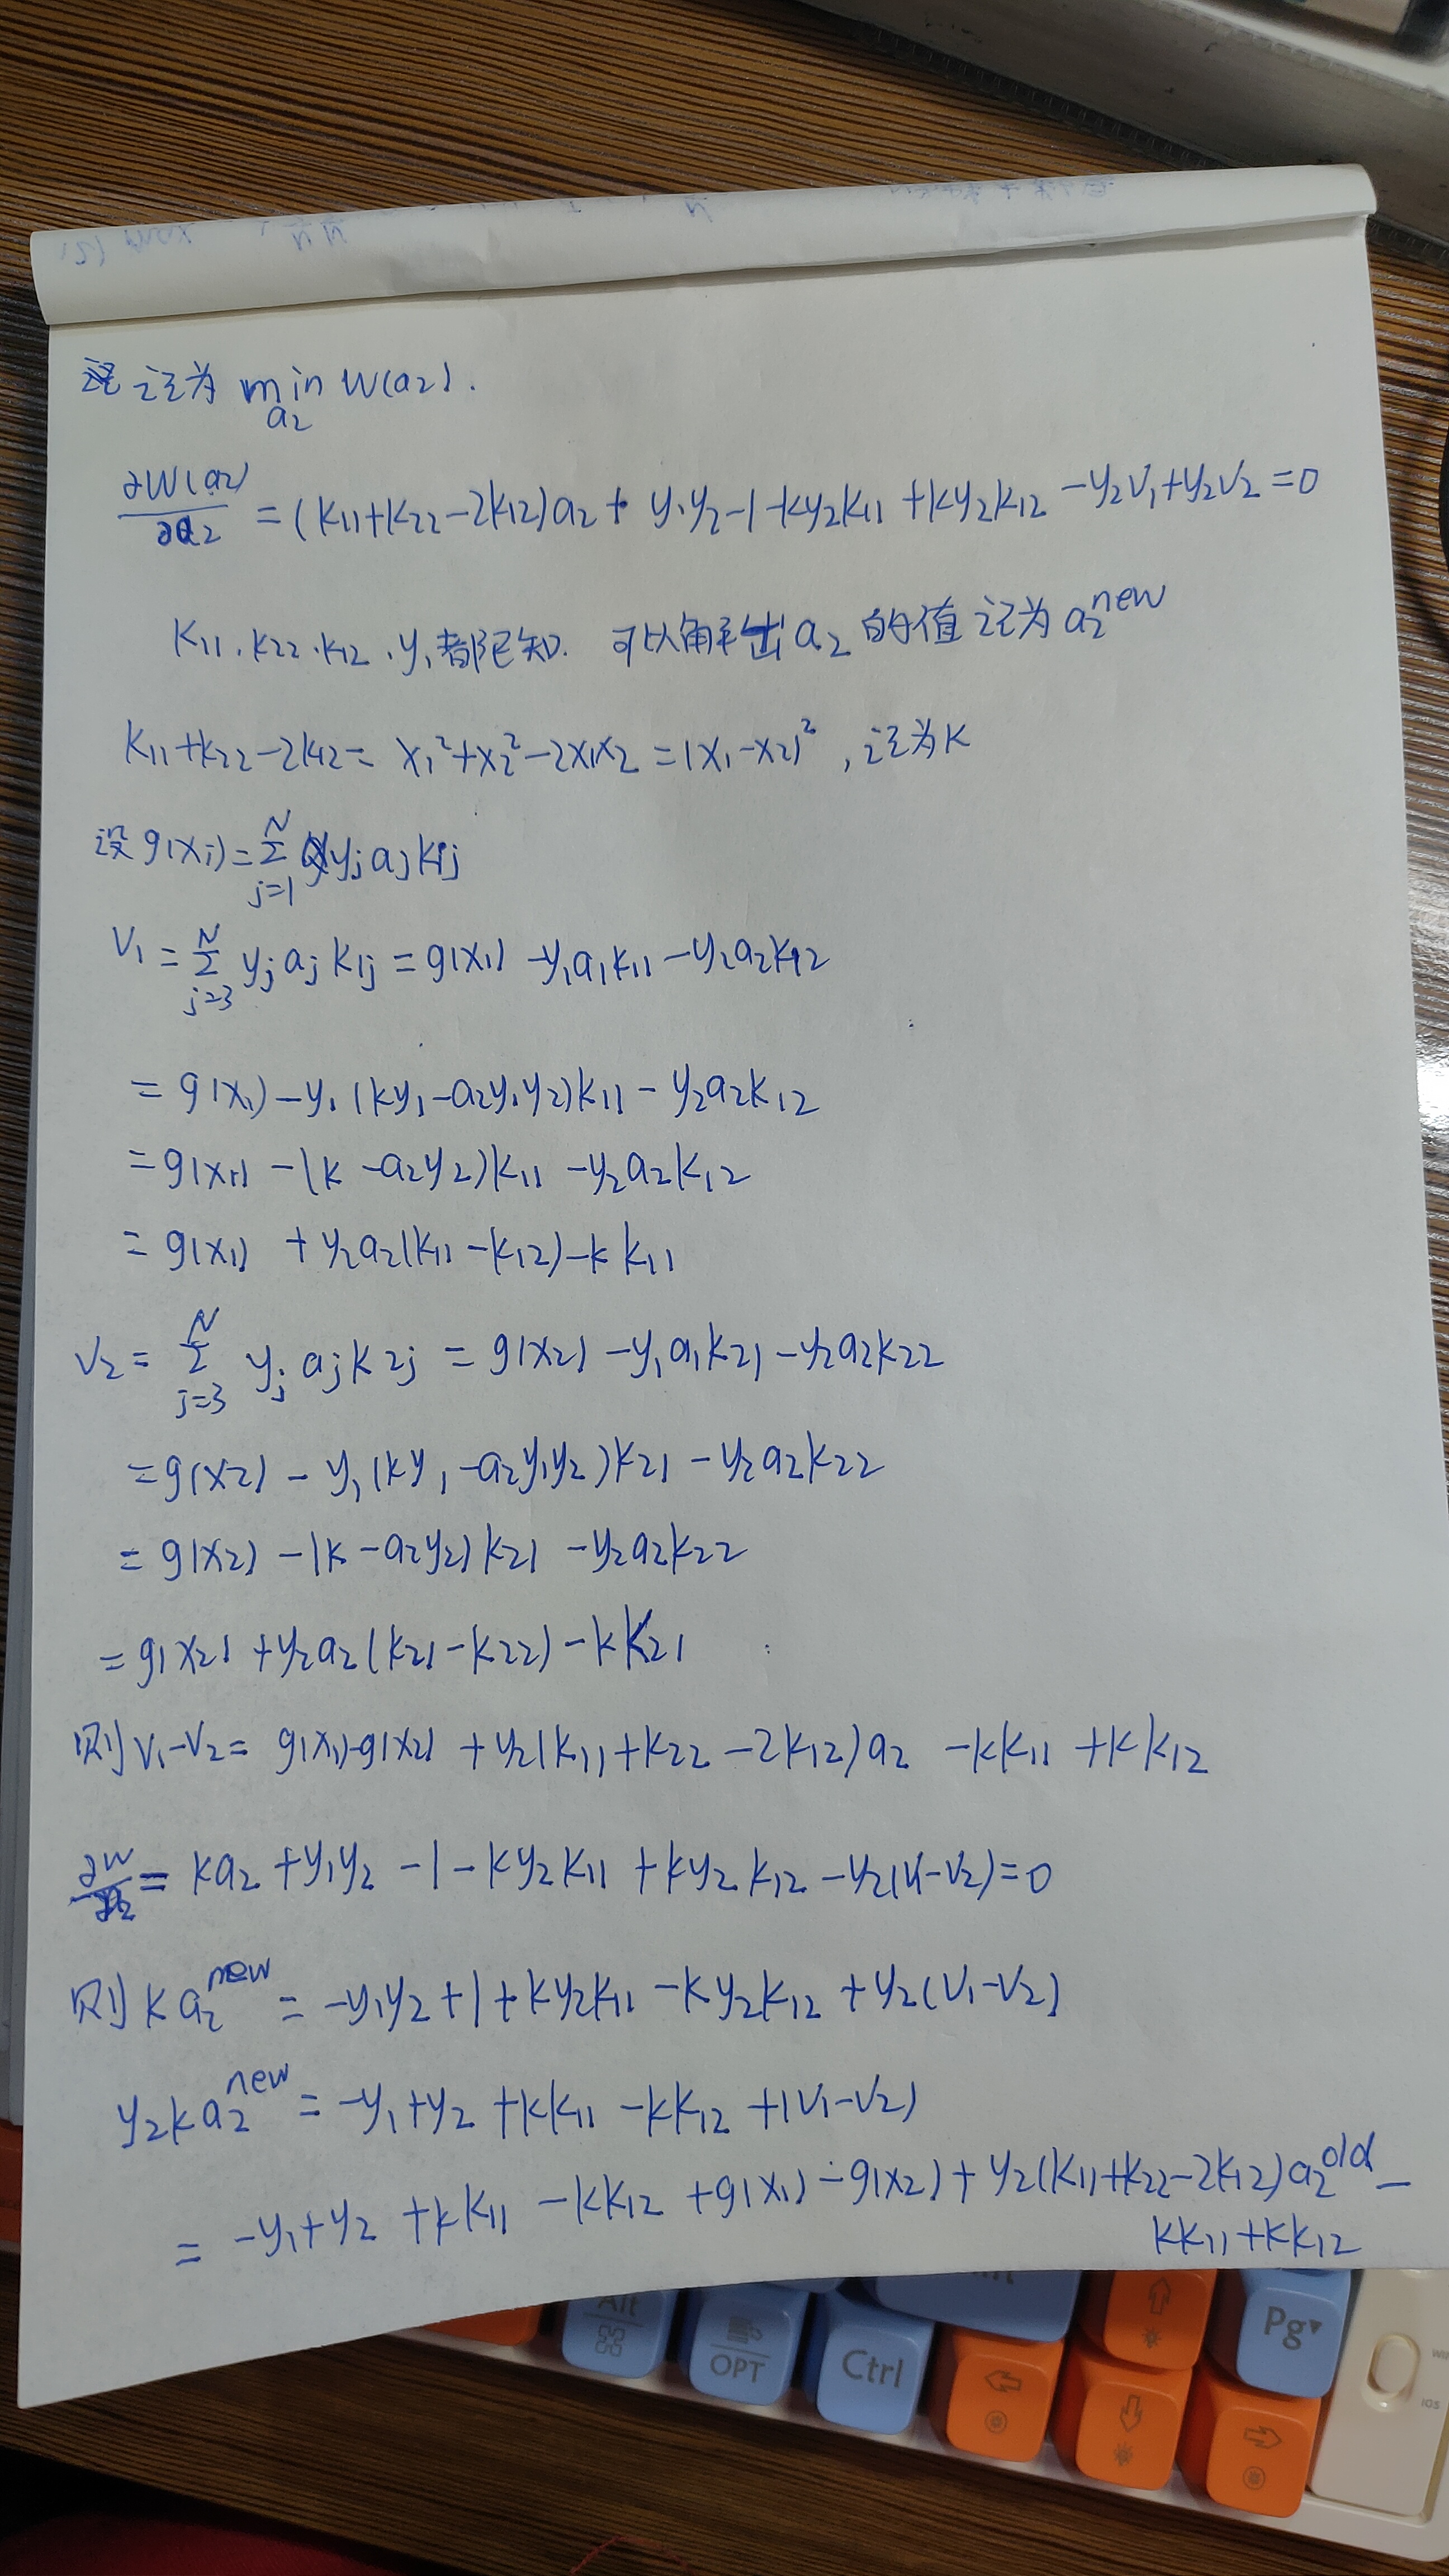 记为 min W(a₂).
a₂
∂W(a₂)/∂a₂ = (k₁₁+k₂₂-2k₁₂)a₂ + y₁y₂-1-ky₂k₁₁+ky₂k₁₂-y₂v₁+y₂v₂=0
k₁₁.k₂₂.k₁₂.y₁都已知. 可以解出a₂的值记为a₂ⁿᵉʷ
k₁₁+k₂₂-2k₁₂= x₁²+x₂²-2x₁x₂=(x₁-x₂)², 记为K
设g(xᵢ)=Σ_{j=1}^{N} yⱼaⱼkᵢⱼ
V₁=Σ_{j=3}^{N} yⱼaⱼk₁ⱼ=g(x₁)-y₁a₁k₁₁-y₂a₂k₁₂
=g(x₁)-y₁(ky₁-a₂y₁y₂)k₁₁-y₂a₂k₁₂
=g(x₁)-(k-a₂y₂)k₁₁-y₂a₂k₁₂
=g(x₁)+y₂a₂(k₁₁-k₁₂)-kk₁₁
V₂=Σ_{j=3}^{N} yⱼaⱼk₂ⱼ=g(x₂)-y₁a₁k₂₁-y₂a₂k₂₂
=g(x₂)-y₁(ky₁-a₂y₁y₂)k₂₁-y₂a₂k₂₂
=g(x₂)-(k-a₂y₂)k₂₁-y₂a₂k₂₂
=g(x₂)+y₂a₂(k₂₁-k₂₂)-kk₂₁
则V₁-V₂=g(x₁)-g(x₂)+y₂(k₁₁+k₂₂-2k₁₂)a₂-kk₁₁+kk₁₂
∂W/∂a₂=Ka₂+y₁y₂-1-ky₂k₁₁+ky₂k₁₂-y₂(V₁-V₂)=0
则Ka₂ⁿᵉʷ=-y₁y₂+1+ky₂k₁₁-ky₂k₁₂+y₂(V₁-V₂)
y₂Ka₂ⁿᵉʷ=-y₁+y₂+kk₁₁-kk₁₂+(V₁-V₂)
=-y₁+y₂+kk₁₁-kk₁₂+g(x₁)-g(x₂)+y₂(k₁₁+k₂₂-2k₁₂)a₂ᵒˡᵈ-
kk₁₁+kk₁₂
Alt
OPT
Ctrl
Pg